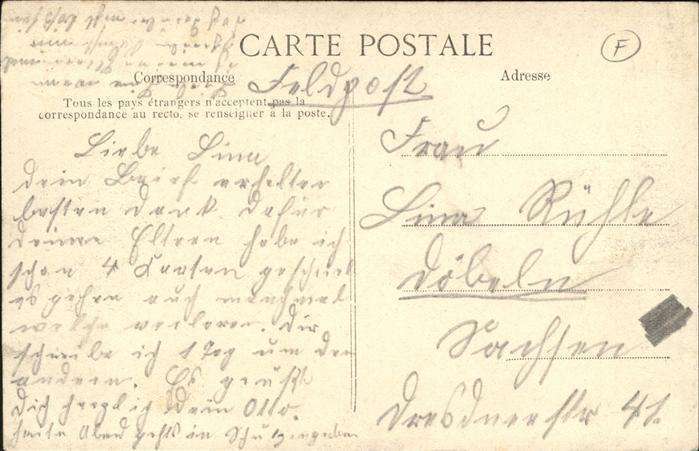 CARTE POSTALE
F
Correspondance
Feldpost
Adresse
Tous les pays étrangers n'acceptent pas la
correspondance au recto, se renseigner à la poste.
Liebe Lina
dein Brief erhalten
besten dank dafür
deine Eltern habe ich
schon 4 Karten geschickt
es gehen auch manchmal
welche verloren. Dir
schreibe ich 1 Tag um den
andern. Es grüßt
Dich herzlich Dein Otto.
heute Abend gehts in Schützengraben
Frau
Lina Rühle
Döbeln
Sachsen
Dresdnerstr 41.